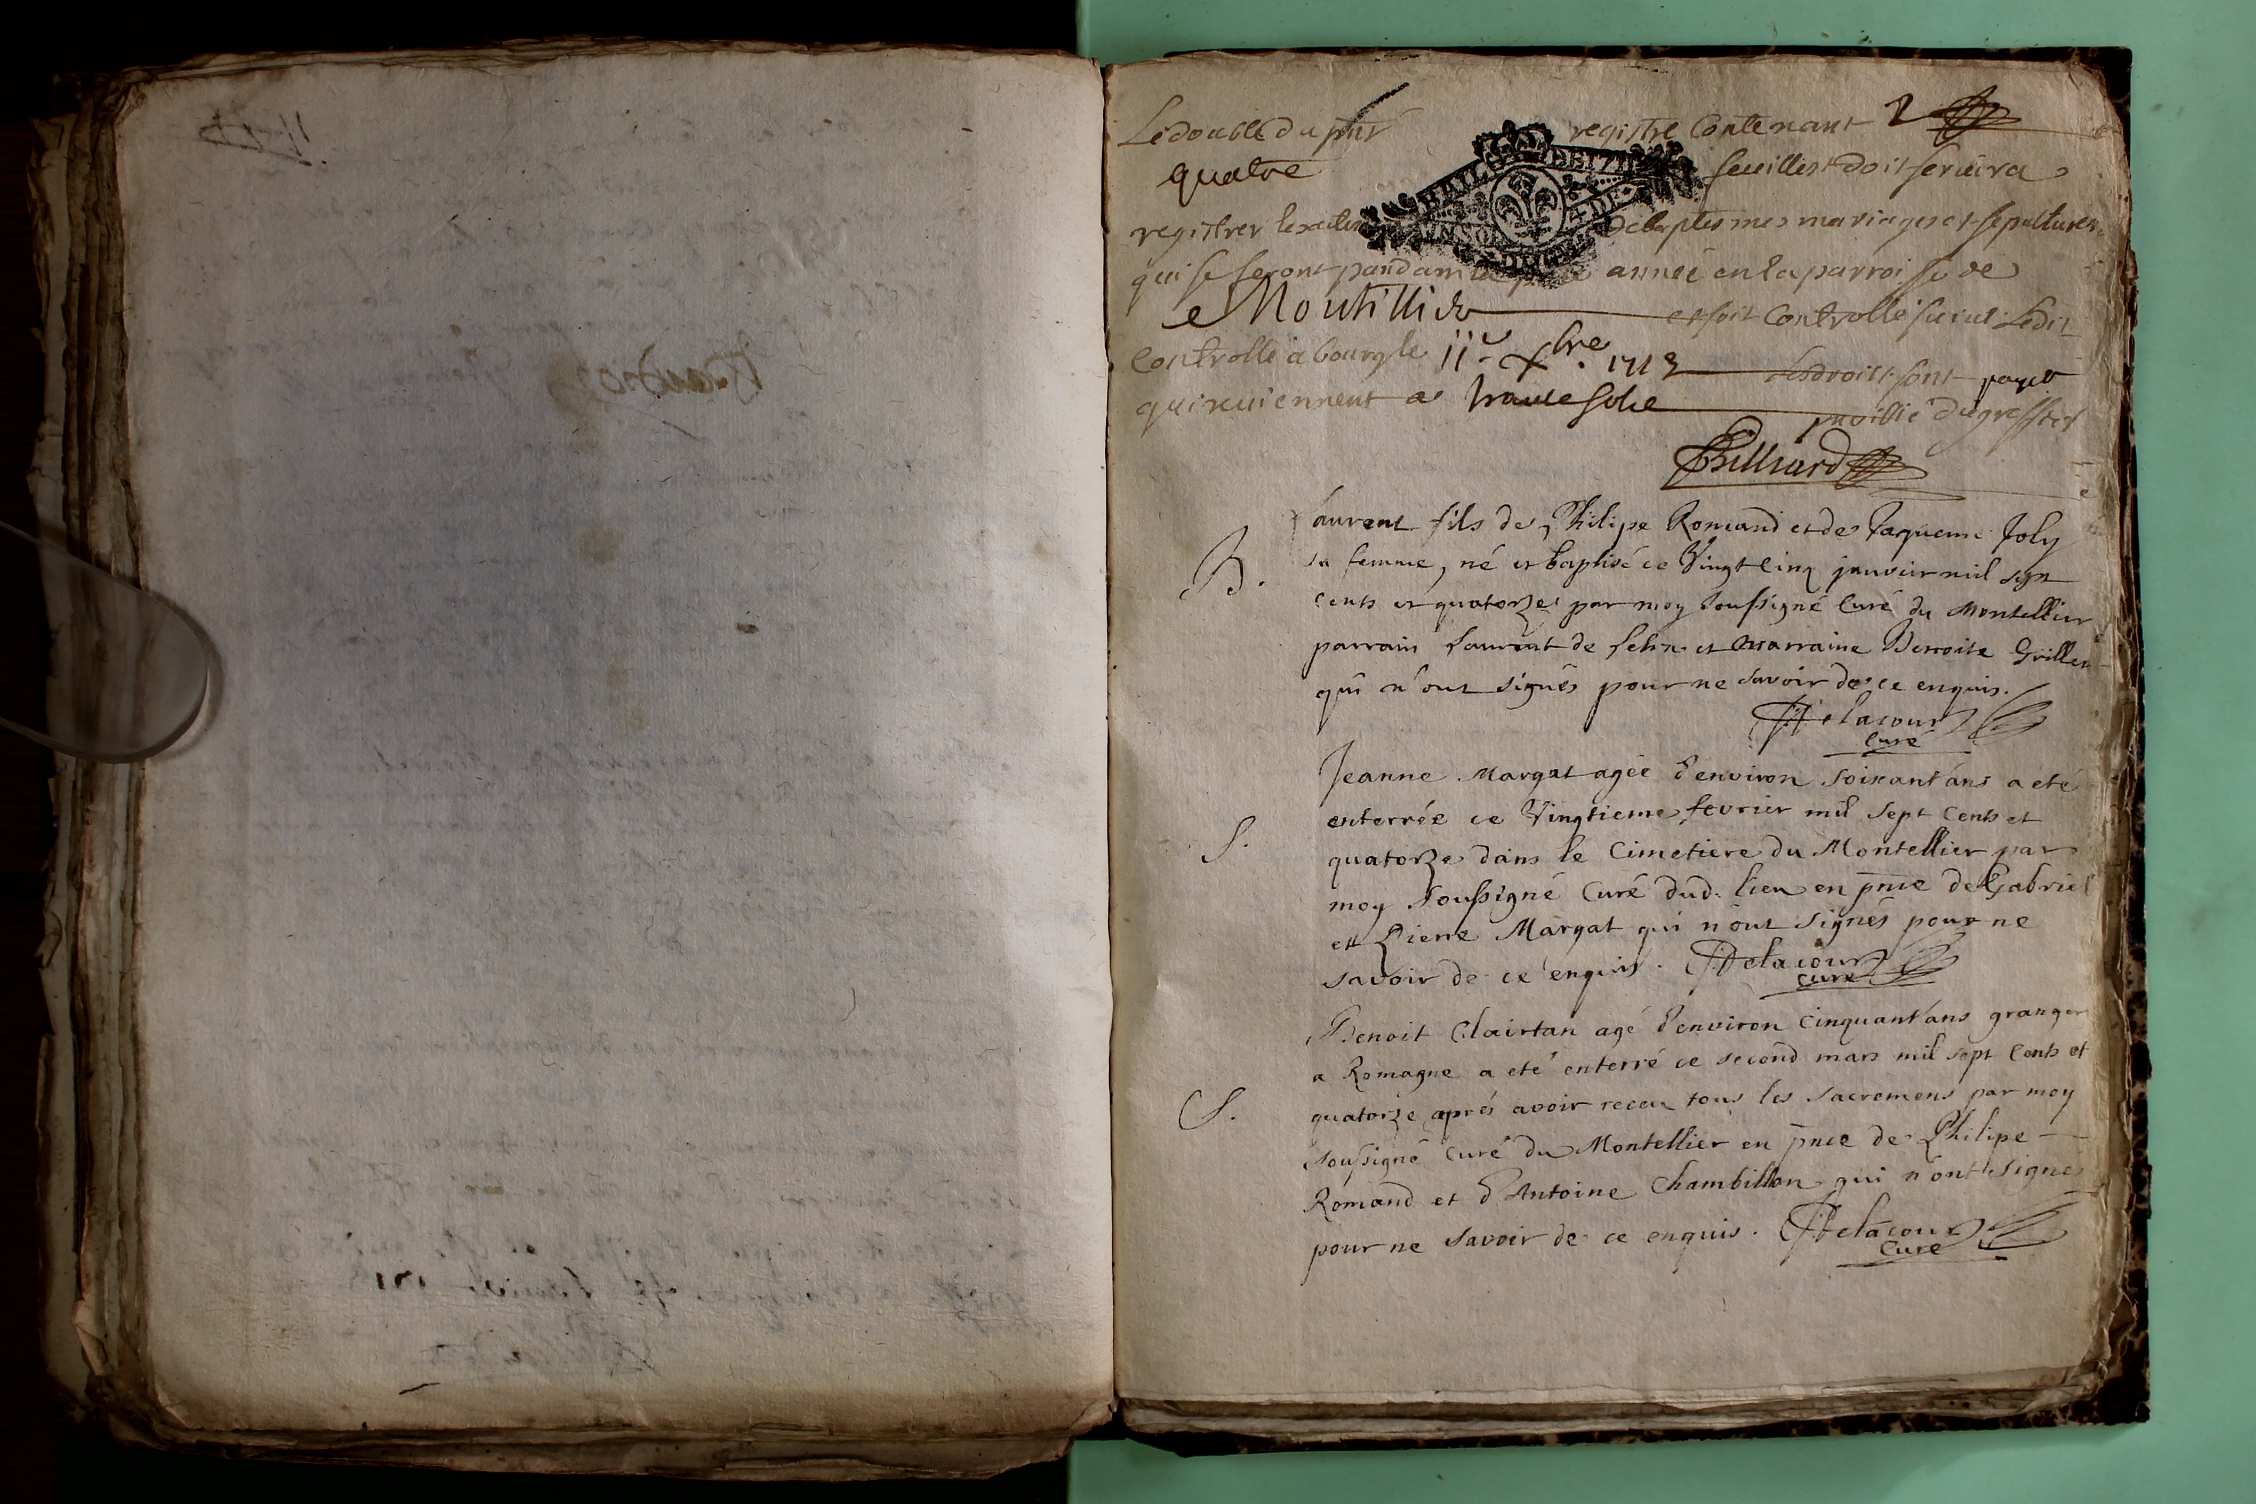 Le double du pnt registre Contenant 1
quatre feuillest doit servir a
registrer les actes De baptesmes mariages et sepultures
qui se feront pandant la année en la parroisse de
Moutillier et soit Controllé suivt Ledit
Controlle a bourg le 11e Xbre 1713 les droits sont payes
qui reviennent a trante solz du greffier
Billiard
B.
Laurent fils de Philipe Romand et de Jaqueme Joly
sa femme, né et baptisé ce Vingt cinq janvier mil sept
cents et quatorze par moy soussigné Curé du Montellier
parrain Laurent de et marraine Benoite Grillet
qui n'ont signés pour ne savoir de ce enquis.
Delacour
Curé
S.
Jeanne Margat agée d'environ soixant'ans a eté
enterrée ce Vingtieme fevrier mil sept Cents et
quatorze dans le Cimetiere du Montellier par
moy soussigné Curé dud. lieu en pnce de Gabriel
et Pierre Margat qui n'ont signés pour ne
savoir de ce enquis. Delacour
curé
S.
Benoit Clairtan agé d'environ Cinquant'ans granger
a Romagne a eté enterré ce second mars mil sept Cents et
quatorze aprés avoir receu tous les sacremens par moy
soussigné Curé du Montellier en pnce de Philipe
Romand et d'Antoine Chambillon qui n'ont signés
pour ne savoir de ce enquis. Delacour
Curé